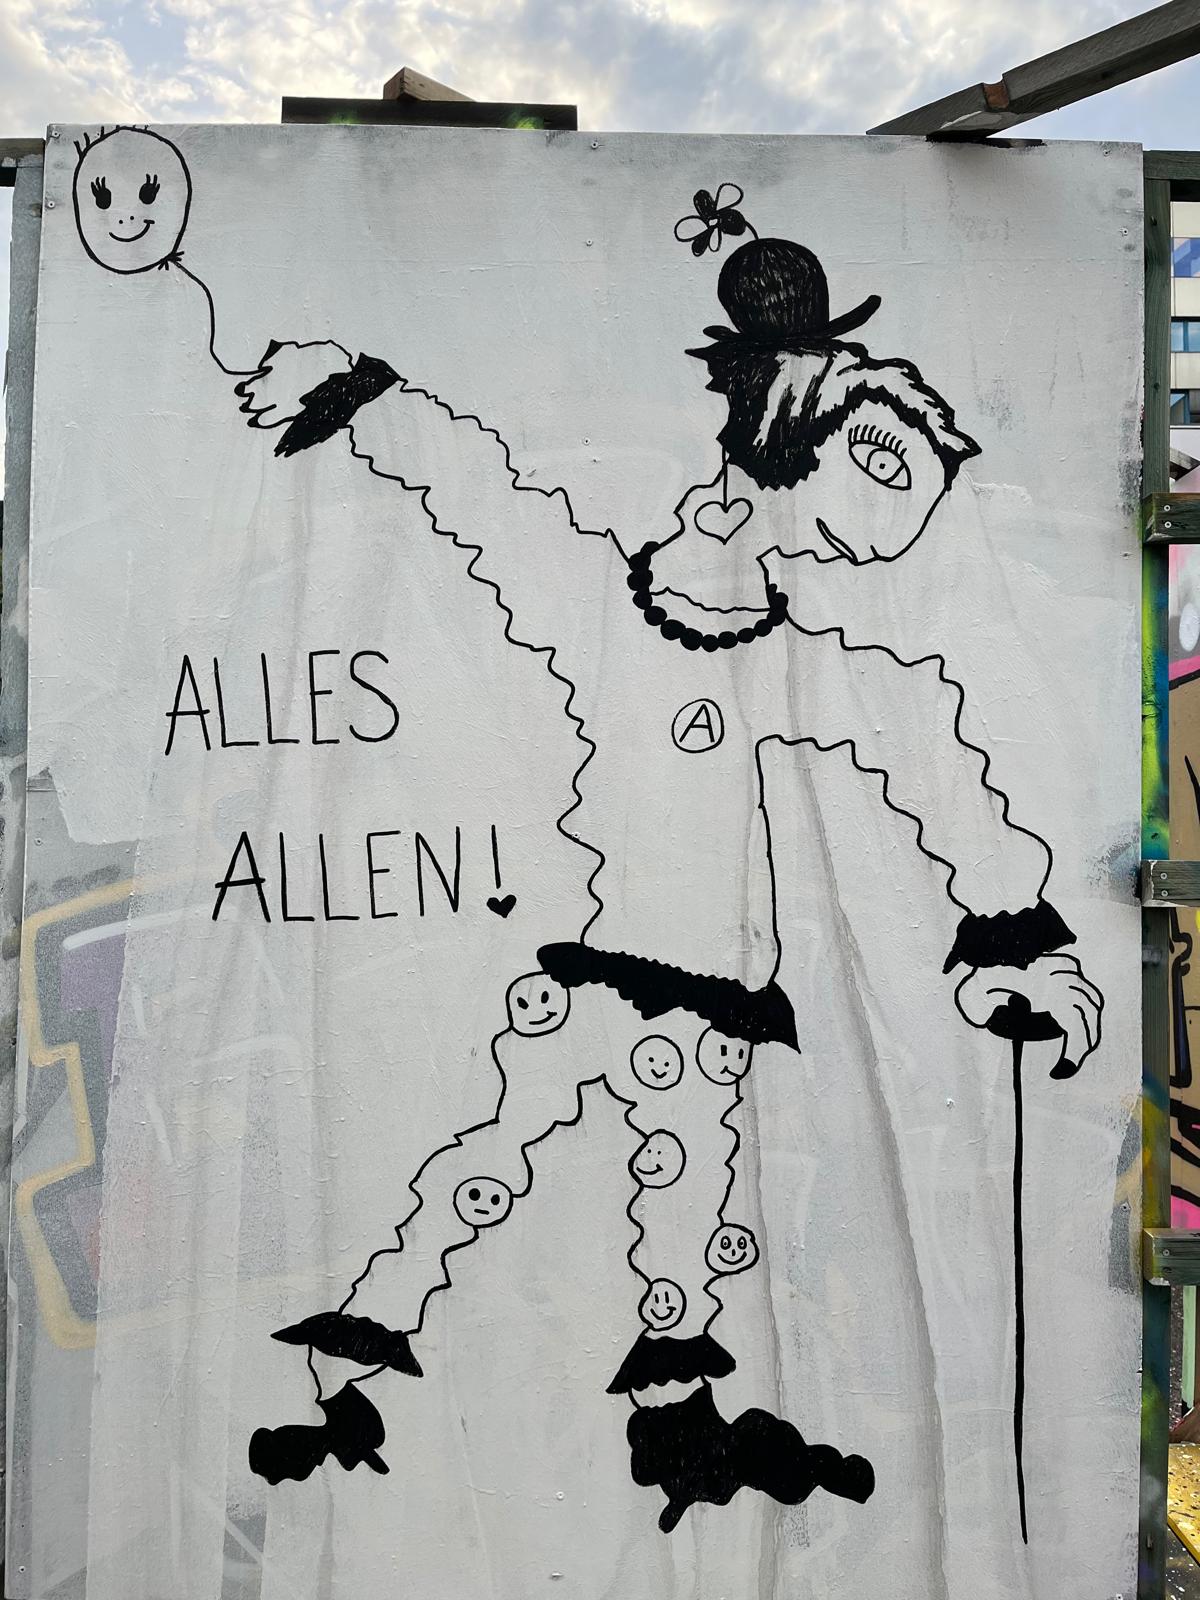 ALLES
ALLEN!
A